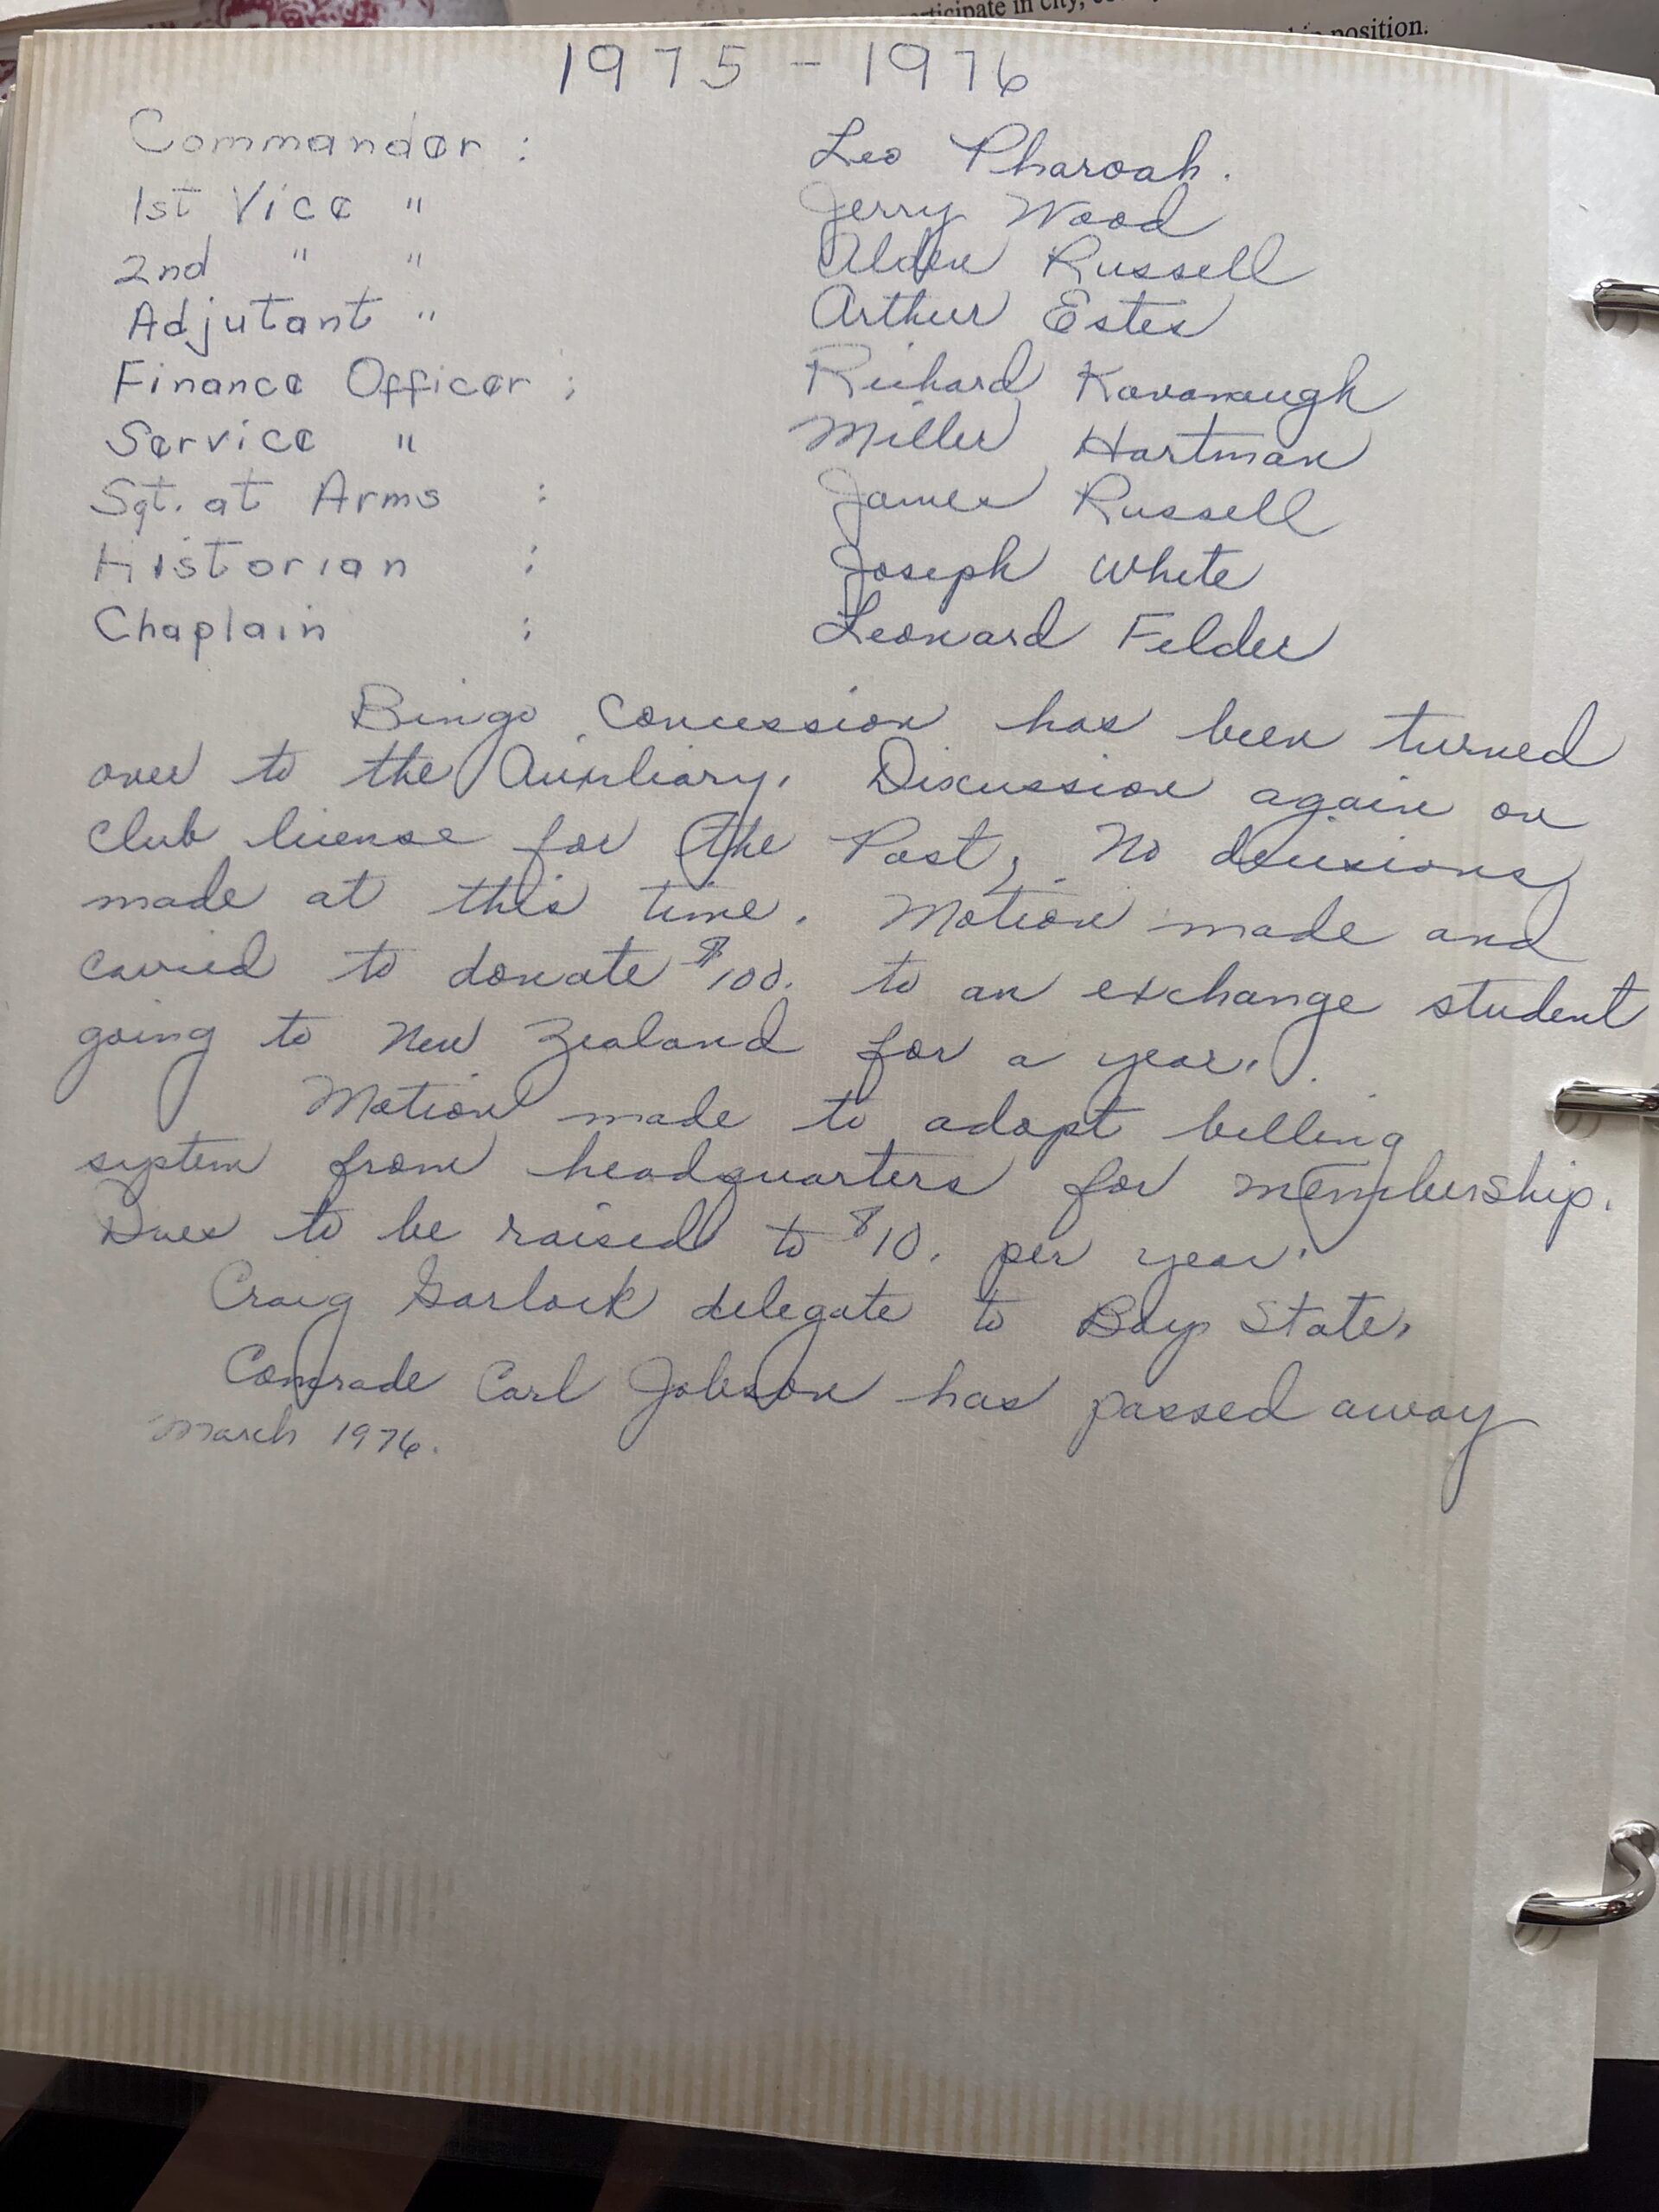 rticipate in city,
position.
1975 - 1976
Commander : Leo Pharoah.
1st Vice " Jerry Wood
2nd " " Alden Russell
Adjutant " Arthur Estes
Finance Officer : Richard Kavanaugh
Service " Miller Hartman
Sgt. at Arms : James Russell
Historian : Joseph White
Chaplain : Leonard Felder
Bingo Concession has been turned
over to the Auxiliary. Discussion again on
Club license for the Post, No decisions
made at this time. Motion made and
carried to donate $100. to an exchange student
going to New Zealand for a year.
Motion made to adopt billing
system from headquarters for membership.
Dues to be raised to $10. per year.
Craig Garlock delegate to Boys State.
Comrade Carl Jobson has passed away
March 1976.